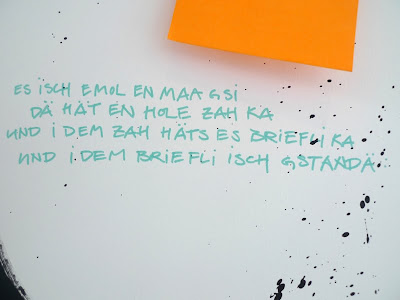 ES ISCH EMOL EN MAA GSI
DÄ HÄT EN HOLE ZAH KA
UND I DEM ZAH HÄTS ES BRIEFLI KA
UND I DEM BRIEFLI ISCH GSTANDÄ